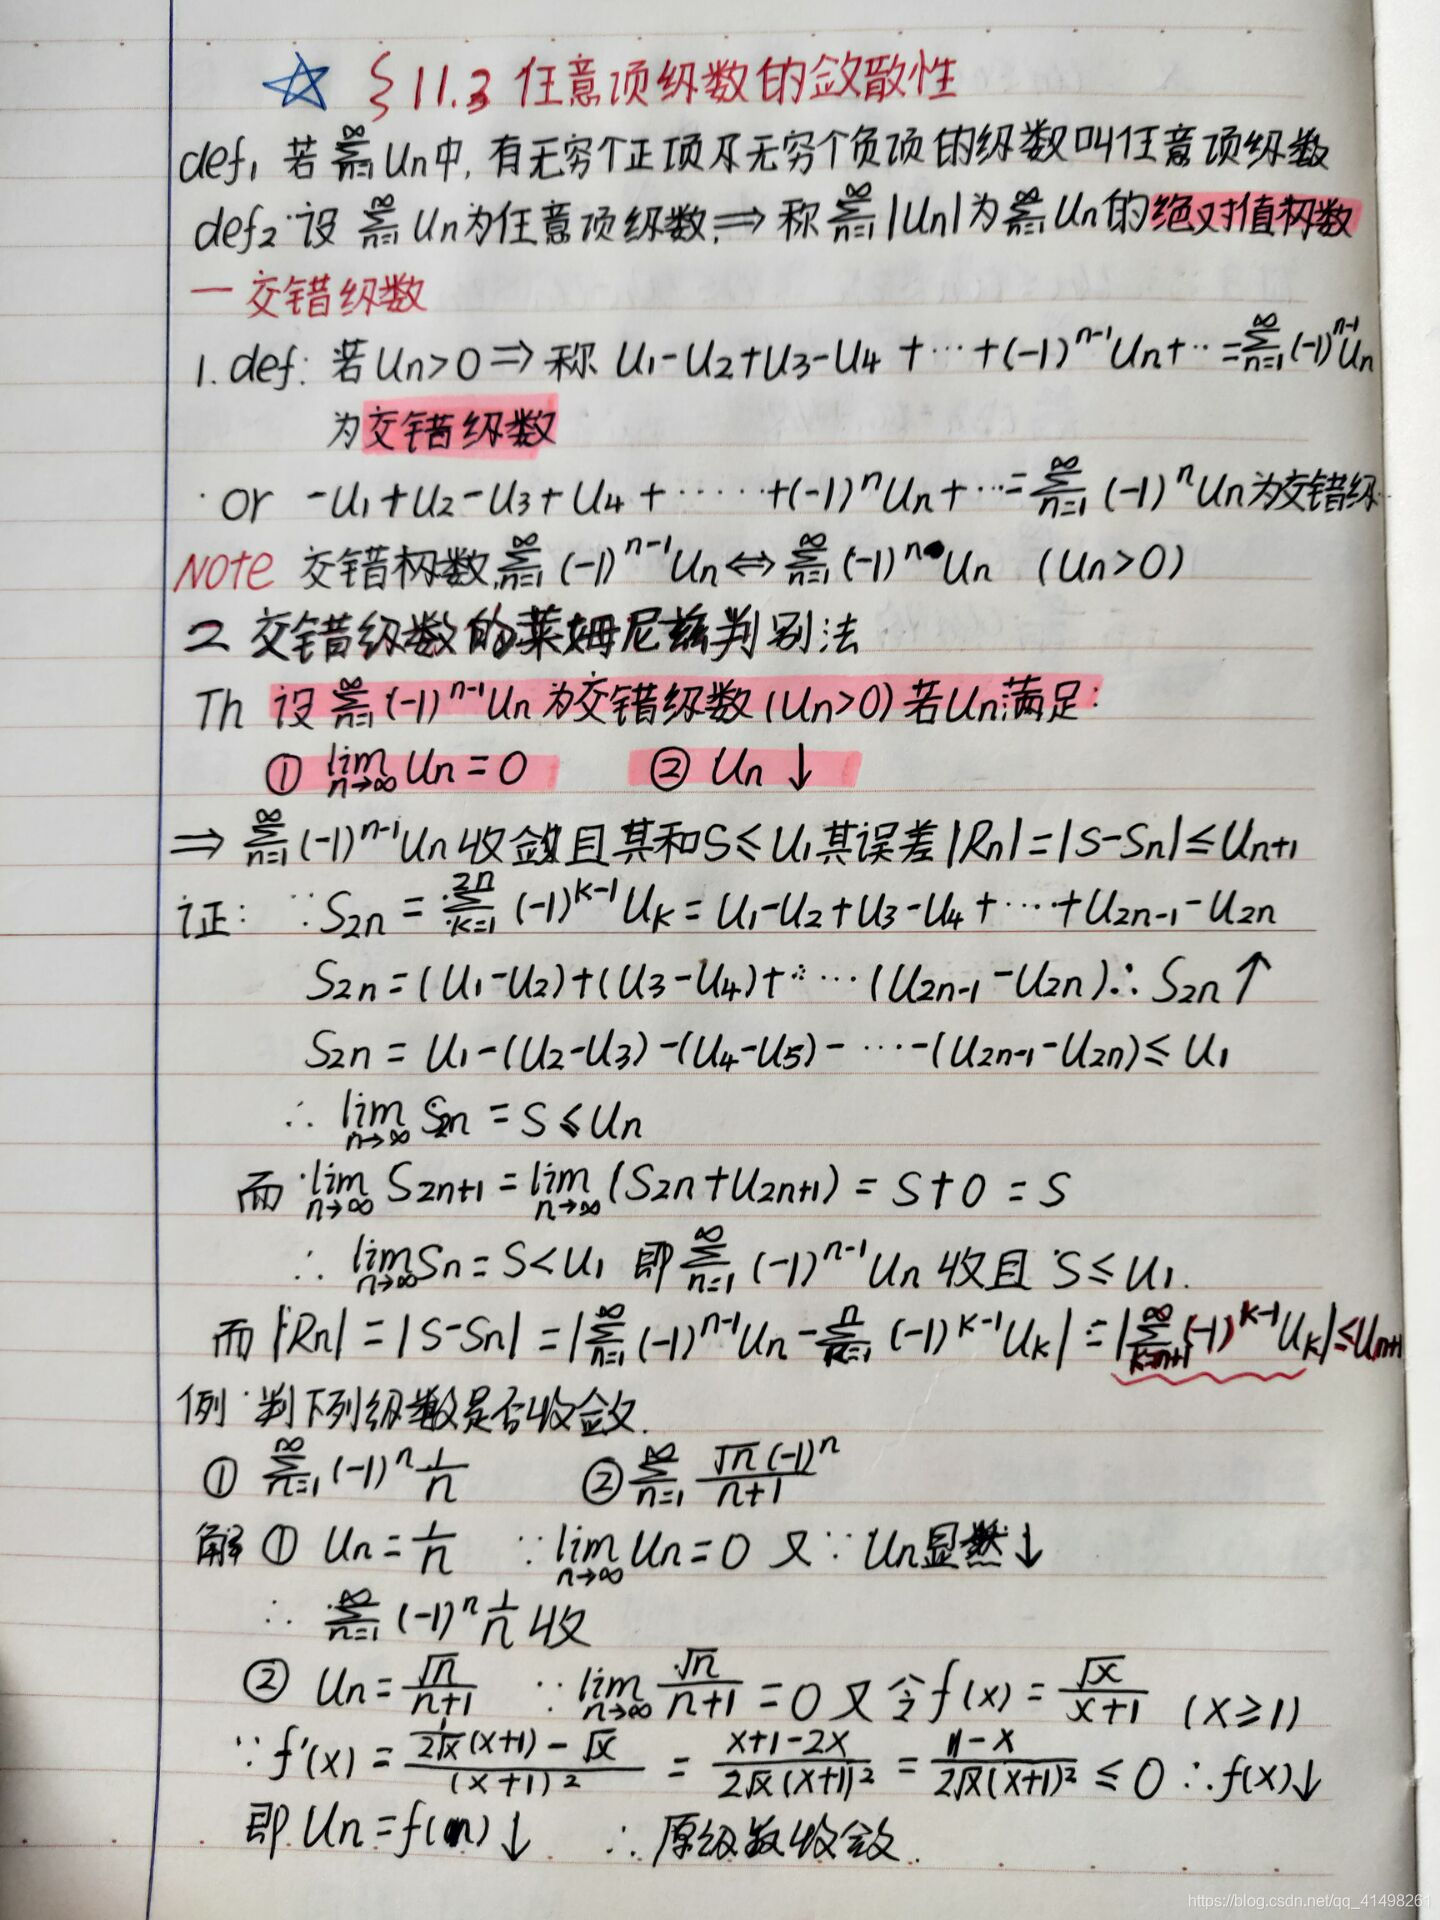 ☆ §11.3 任意项级数的敛散性
def₁ 若 ∑_{n=1}^∞ Un中, 有无穷个正项及无穷个负项的级数叫任意项级数
def₂ 设 ∑_{n=1}^∞ Un为任意项级数, ⇒ 称 ∑_{n=1}^∞ |Un| 为 ∑_{n=1}^∞ Un的绝对值级数
一 交错级数
1. def: 若Un>0 ⇒ 称 U₁-U₂+U₃-U₄+⋯+(-1)^{n-1}Un+⋯=∑_{n=1}^∞ (-1)^{n-1}Un
为交错级数
or -U₁+U₂-U₃+U₄+⋯⋯+(-1)^n Un+⋯=∑_{n=1}^∞ (-1)^n Un为交错级
Note 交错级数 ∑_{n=1}^∞ (-1)^{n-1}Un ⇔ ∑_{n=1}^∞ (-1)^n Un (Un>0)
2 交错级数的莱姆尼兹判别法
Th 设 ∑_{n=1}^∞ (-1)^{n-1}Un 为交错级数 (Un>0) 若Un满足:
① lim_{n→∞} Un=0 ② Un↓
⇒ ∑_{n=1}^∞ (-1)^{n-1}Un收敛且其和S≤U₁其误差|Rn|=|S-Sn|≤U_{n+1}
证: ∵S_{2n}=∑_{k=1}^{2n} (-1)^{k-1}U_k=U₁-U₂+U₃-U₄+⋯+U_{2n-1}-U_{2n}
S_{2n}=(U₁-U₂)+(U₃-U₄)+⋯(U_{2n-1}-U_{2n})∴S_{2n}↑
S_{2n}=U₁-(U₂-U₃)-(U₄-U₅)-⋯-(U_{2n-1}-U_{2n})≤U₁
∴ lim_{n→∞} S_{2n}=S≤Un
而 lim_{n→∞} S_{2n+1}=lim_{n→∞}(S_{2n}+U_{2n+1})=S+0=S
∴ lim_{n→∞} Sn=S<U₁ 即 ∑_{n=1}^∞ (-1)^{n-1}Un 收且 S≤U₁.
而|Rn|=|S-Sn|=|∑_{n=1}^∞ (-1)^{n-1}Un-∑_{k=1}^n (-1)^{k-1}U_k|=|∑_{k=n+1}^∞ (-1)^{k-1}U_k|≤U_{n+1}
例 判下列级数是否收敛.
① ∑_{n=1}^∞ (-1)^n 1/n ② ∑_{n=1}^∞ √n(-1)^n/(n+1)
解 ① Un=1/n ∵lim_{n→∞} Un=0 又∵Un显然↓
∴ ∑_{n=1}^∞ (-1)^n 1/n 收
② Un=√n/(n+1) ∵lim_{n→∞} √n/(n+1)=0 又令f(x)=√x/(x+1) (x≥1)
∵f'(x)=(1/(2√x)(x+1)-√x)/(x+1)²=(x+1-2x)/(2√x(x+1)²)=(1-x)/(2√x(x+1)²)≤0∴f(x)↓
即Un=f(n)↓ ∴原级数收敛.
https://blog.csdn.net/qq_41498261